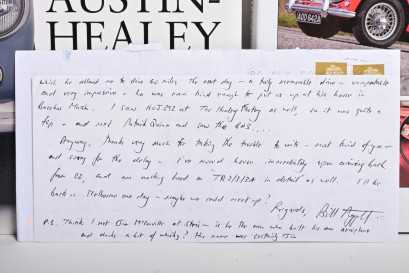 AUSTIN-
HEALEY
AOD 642A
which he allowed me to drive 200 miles the next day – a truly memorable drive –
and very impressive – he was even kind enough to put us up at his house in
Bacchus Marsh. I saw NOJ 392 at The Healey Factory as well, so it was quite a
trip – and met Patrick Quinn and saw the
Anyway, thank you very much for taking the trouble to write – most kind of you –
and sorry for the delay – I've moved house immediately upon arriving back
from OZ, and am working hard on "TR2/3/3A in detail" as well. I'll be
back in Melbourne one day – maybe we could meet up?
Regards, Bill
P.S. Think I met Jim at – is he the man who built his own aeroplane
and drinks a bit of whisky? The name was certainly Jim